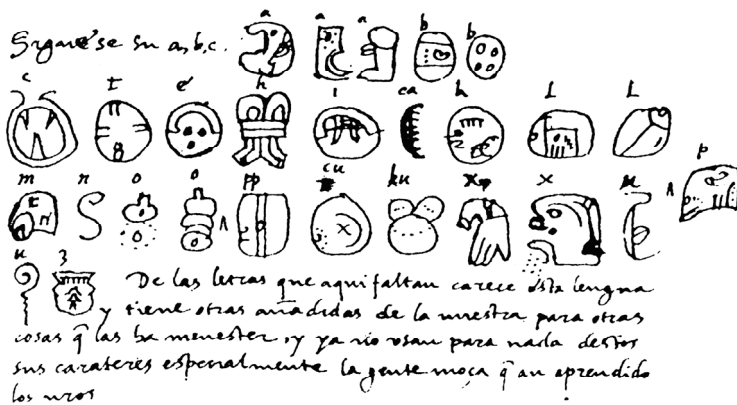 Siguese su a, b, c. a a a b b
c t e h i ca k l l
m n o o pp cu ku x x u p
u z De las letras que aqui faltan carece esta lengua
y tiene otras añadidas de la nuestra para otras
cosas q̃ las ha menester, y ya no usan para nada destos
sus carateres especialmente la gente moça q̃ an aprendido
los nros